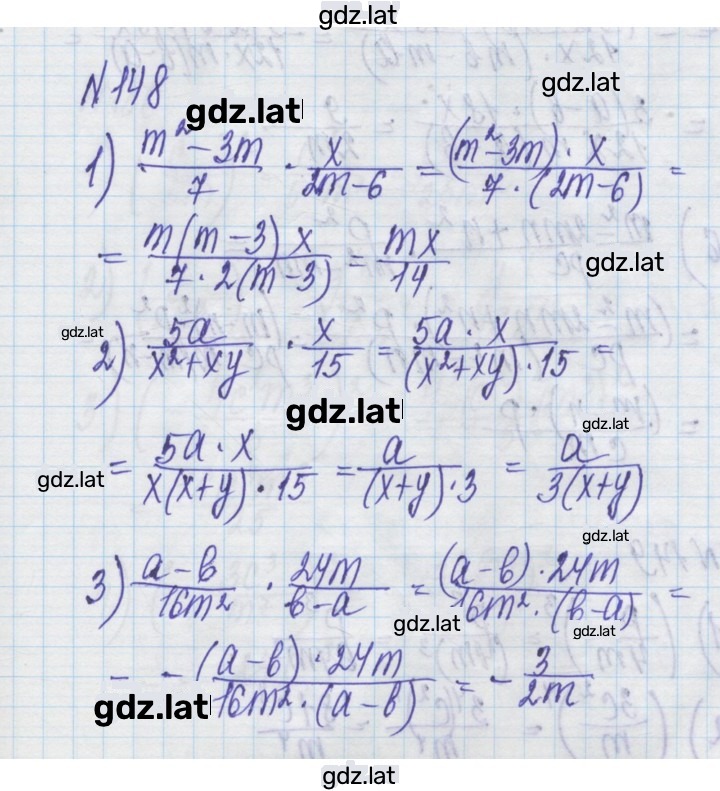 gdz.lat
N 148
gdz.lat
gdz.lat
1) (m² − 3m)/7 · x/(2m − 6) = ((m² − 3m) · x)/(7 · (2m − 6)) =
= (m(m − 3)x)/(7 · 2(m − 3)) = mx/14.
gdz.lat
gdz.lat
2) 5a/(x² + xy) · x/15 = (5a · x)/((x² + xy) · 15) =
gdz.lat
gdz.lat
= (5a · x)/(x(x + y) · 15) = a/((x + y) · 3) = a/(3(x + y))
gdz.lat
gdz.lat
3) (a − b)/(16m²) · 24m/(b − a) = ((a − b) · 24m)/(16m² · (b − a)) =
gdz.lat
gdz.lat
= − ((a − b) · 24m)/(16m² · (a − b)) = − 3/(2m)
gdz.lat
gdz.lat